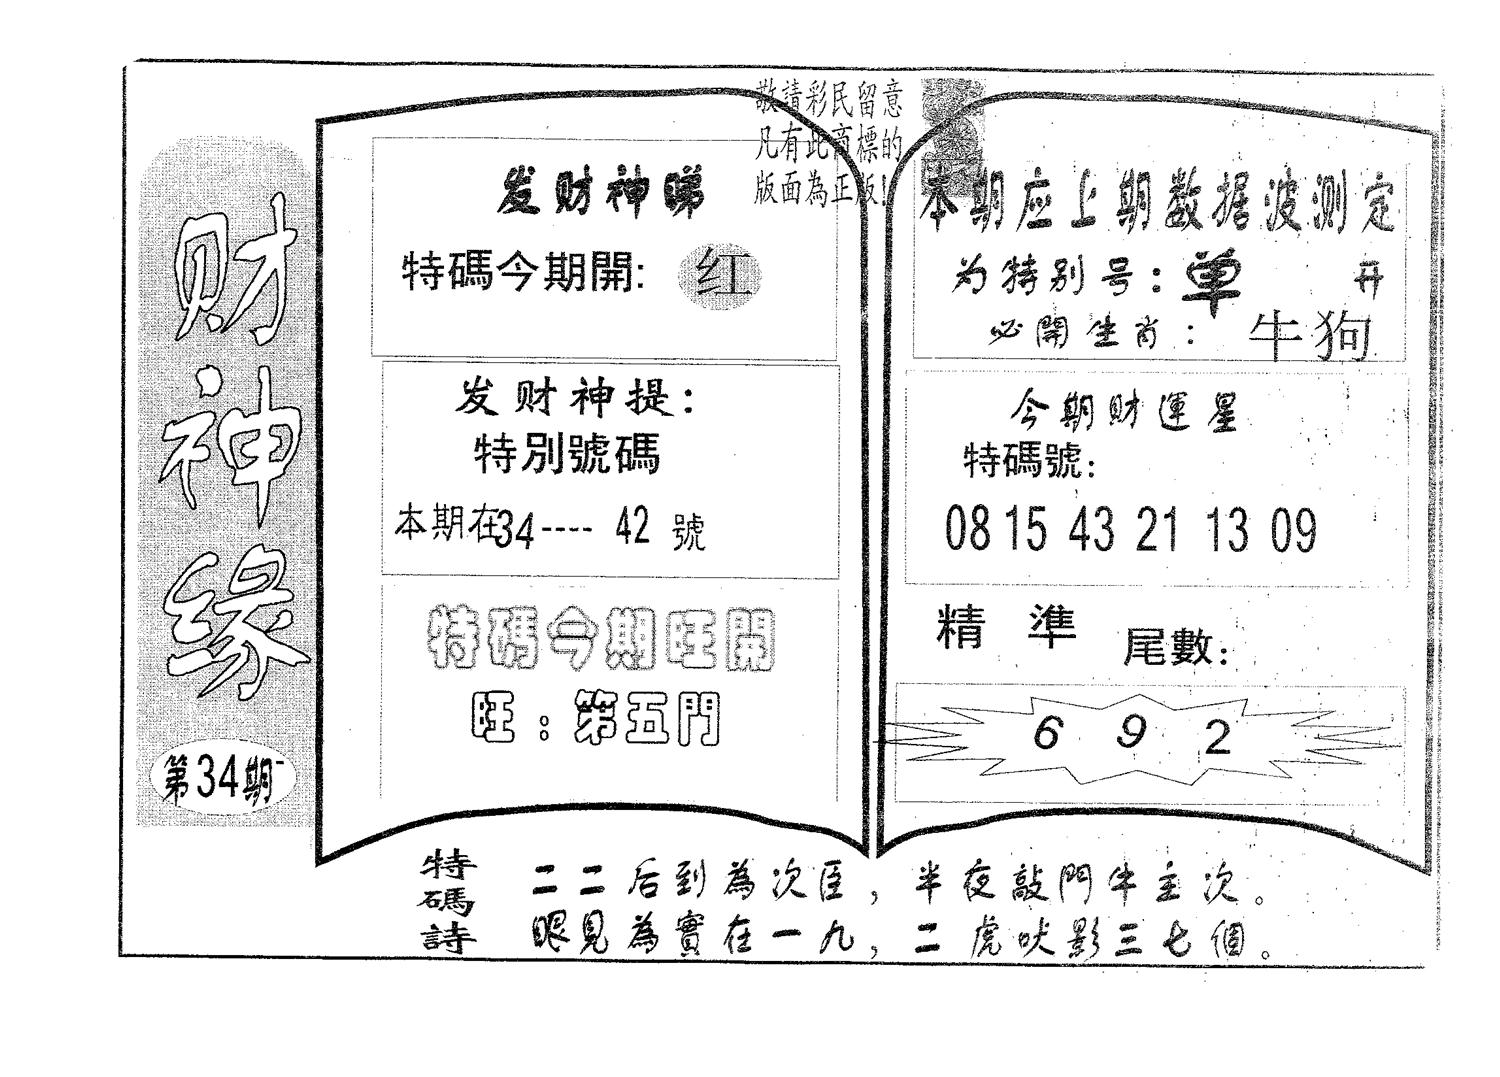 财神缘
第34期
敬請彩民留意
凡有此商標的
版面為正版!
发财神睇
特碼今期開: 红
发财神提:
特別號碼
本期在34---- 42 號
特碼今期旺開
旺:第五門
本期应上期数据波测定
为特别号:单 开
必開生肖: 牛狗
今期財運星
特碼號:
08 15 43 21 13 09
精 準 尾數:
6 9 2
特碼詩
二二后到為次臣,半夜敲門牛主次。
眼見為實在一九,二虎吠影三七個。